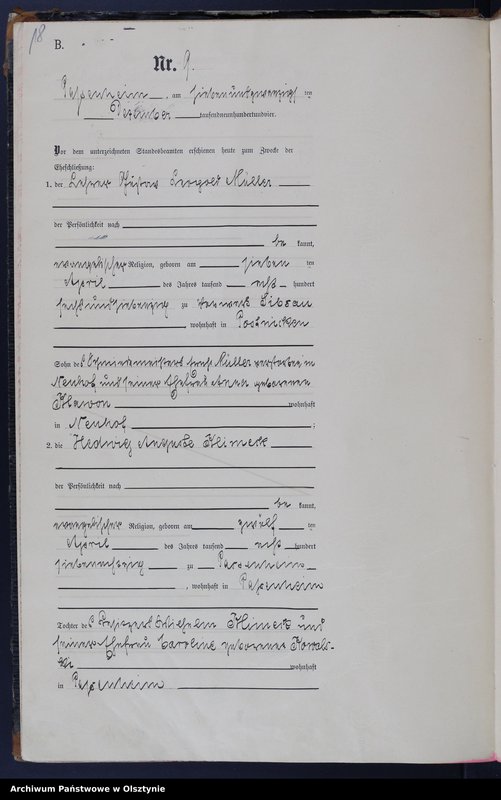 18
B.
Nr. 9.
Passenheim, am siebenundzwanzigsten
Dezember tausendneunhundertundvier.
Vor dem unterzeichneten Standesbeamten erschienen heute zum Zwecke der
Eheschließung:
1. der Lehrer Gustav Leopold Müller
der Persönlichkeit nach
be kannt,
evangelischer Religion, geboren am sieben ten
April des Jahres tausend acht hundert
sechsundsiebenzig zu Vorwerk
, wohnhaft in
Sohn des Schmiedemeisters Müller verstorben in
Neuhof, und seiner Ehefrau geborenen
wohnhaft
in Neuhof ;
2. die Hedwig Auguste Klimeck
der Persönlichkeit nach
be kannt,
evangelischer Religion, geboren am zwölf ten
April des Jahres tausend acht hundert
siebenachtzig zu Passenheim
, wohnhaft in Passenheim
Tochter des Wilhelm Klimeck und
seiner Ehefrau Caroline geborenen Kowals-
ki wohnhaft
in Passenheim
Archiwum Państwowe w Olsztynie